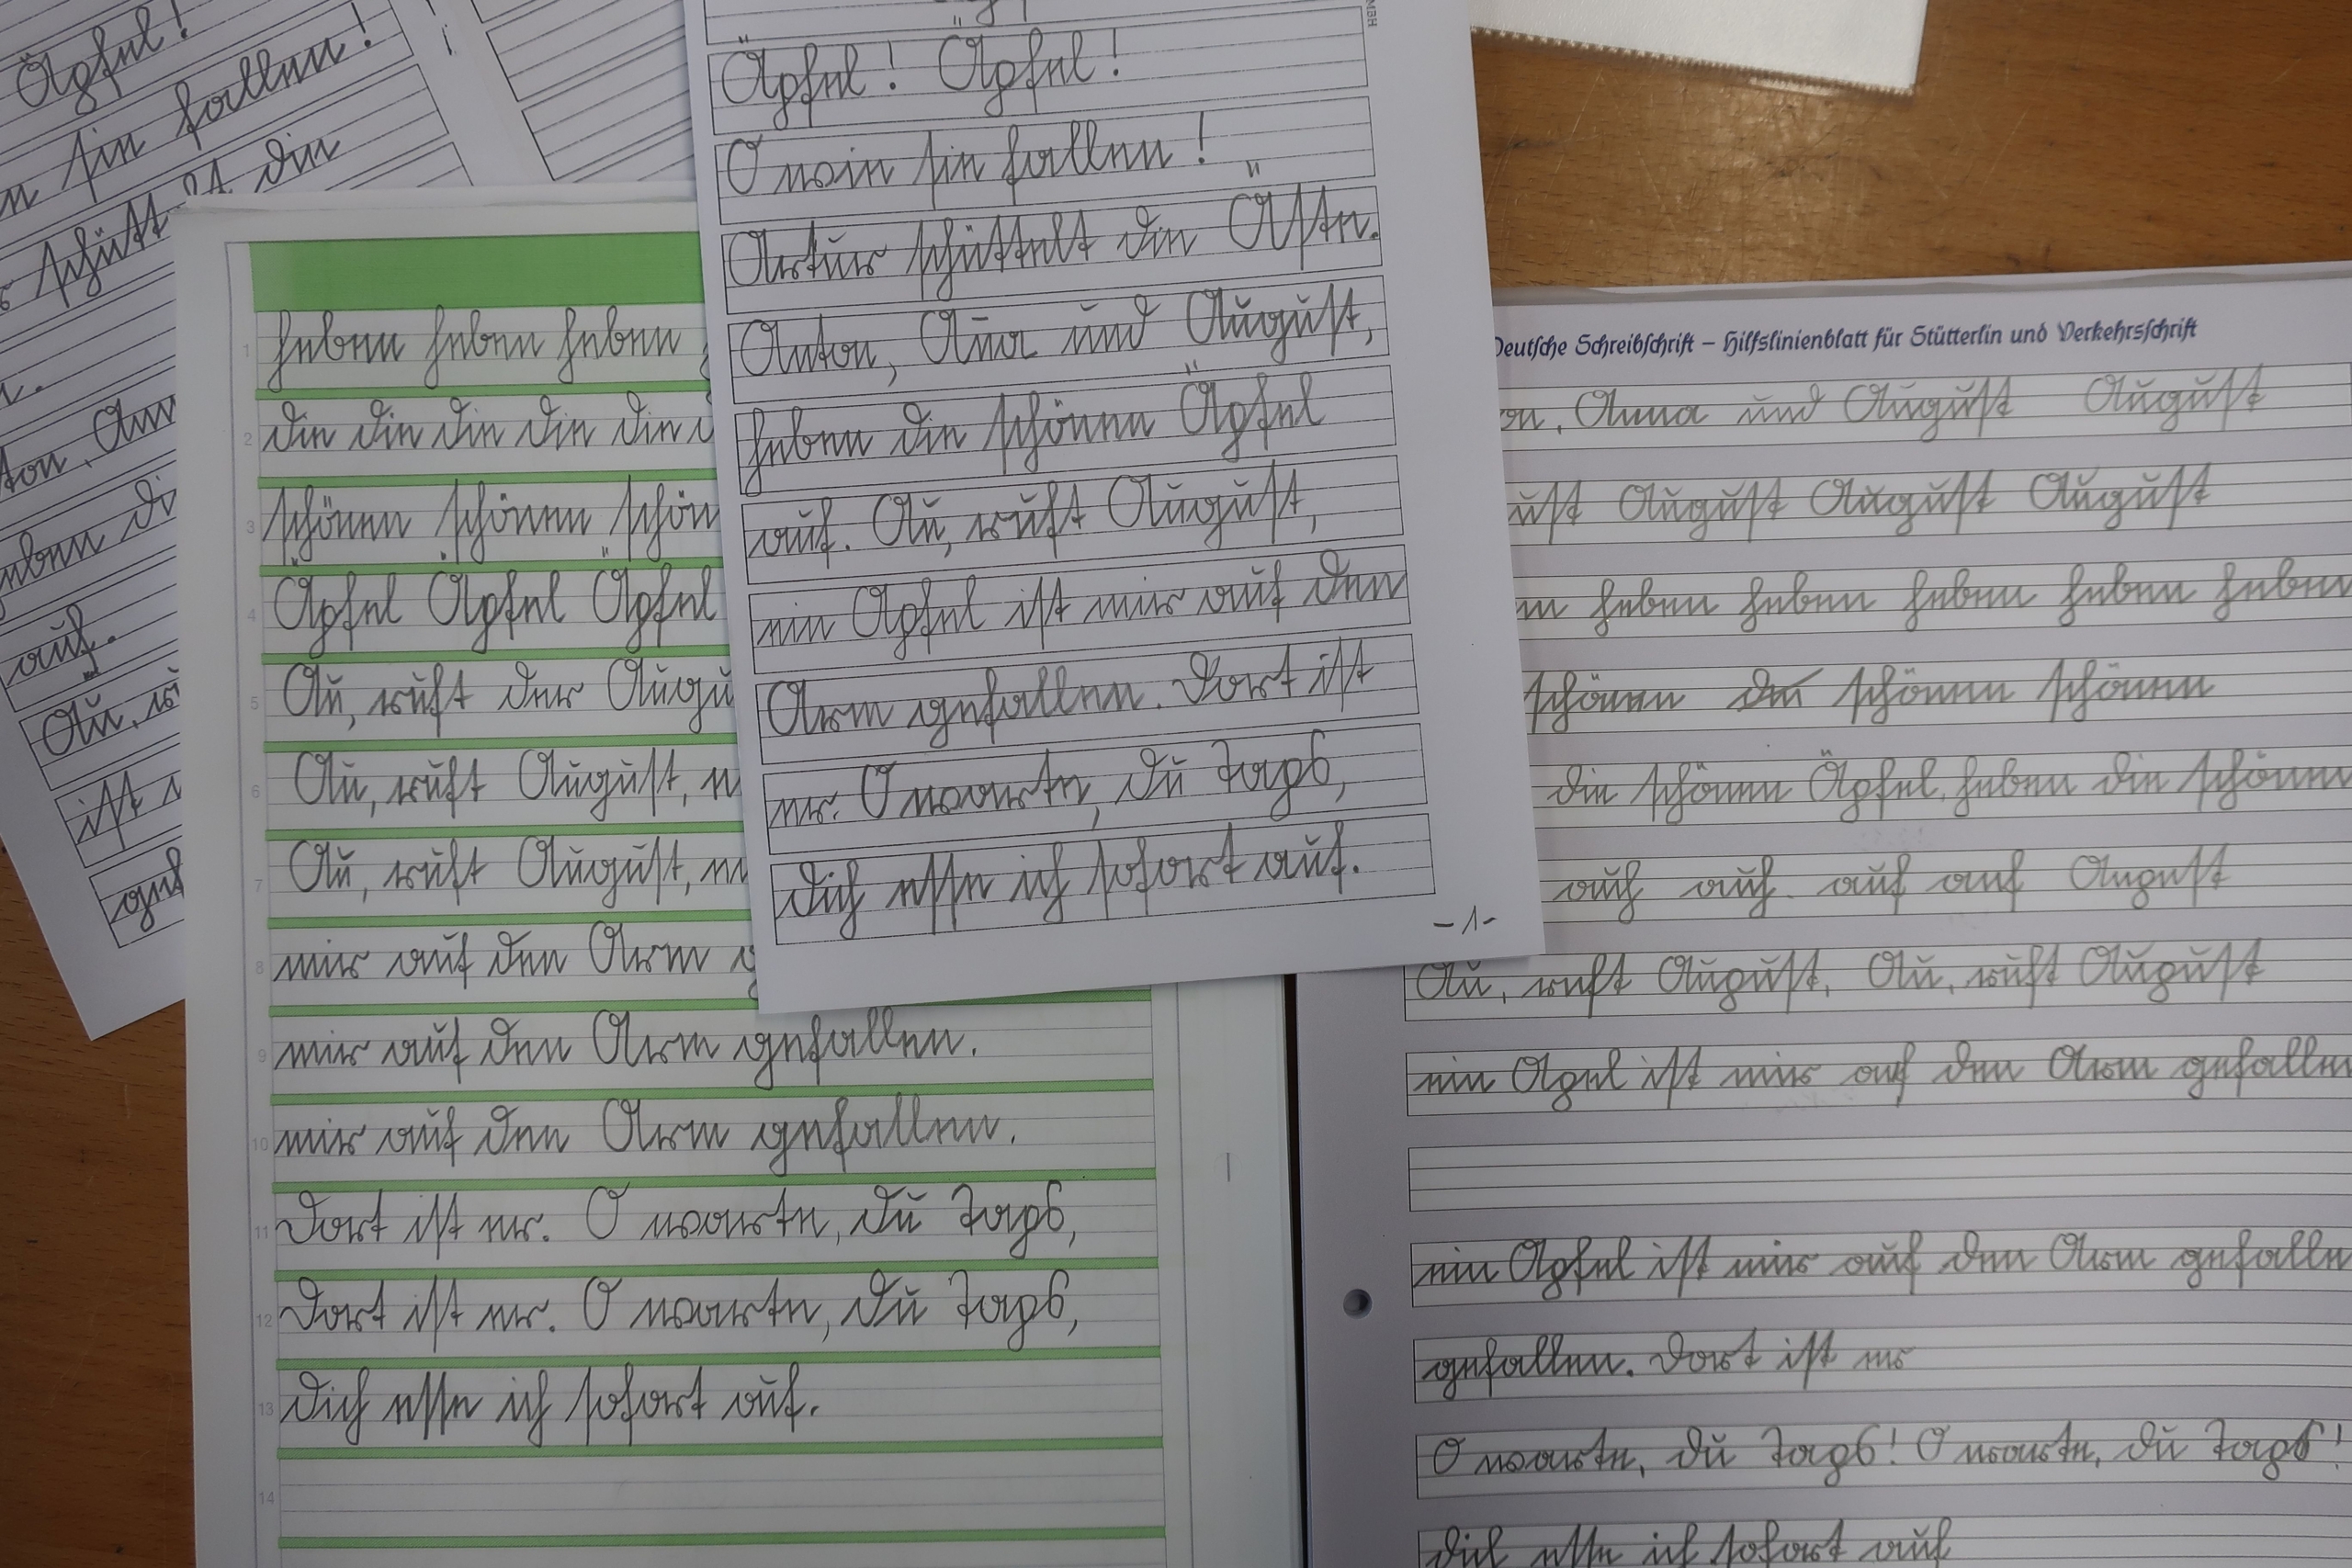 Äpfel!
sie fallen!
schütt
die
ton, Ann
eben di
auf.
Au, r
ist
gef
1 heben heben heben
2 die die die die die
3 schönen schönen schön
4 Äpfel Äpfel Äpfel
5 Au, ruft der Augu
6 Au, ruft August, e
7 Au, ruft August, ei
8 mir auf den Arm g
9 mir auf den Arm gefallen.
10 mir auf den Arm gefallen.
11 Dort ist er. O warte, du Taps,
12 Dort ist er. O warte, du Taps,
13 dich esse ich sofort auf.
14
Äpfel! Äpfel!
O wie sie fallen!
Artur schüttelt die Äste.
Anton, Anna und August,
heben die schönen Äpfel
auf. Au, ruft August,
ein Apfel ist mir auf den
Arm gefallen. Dort ist
er. O warte, du Taps,
dich esse ich sofort auf.
-1-
Deutsche Schreibschrift – Hilfslinienblatt für Sütterlin und Verkehrsschrift
on, Anna und August August
ust August August August
en heben heben heben heben heben
schönen schönen schönen
die schönen Äpfel, heben die schönen
auf auf auf auf August
Au, ruft August, Au, ruft August
ein Apel ist mir auf den Arm gefallen
ein Apfel ist mir auf den Arm gefalle
gefallen. Dort ist er
O warte, du Taps! O warte, du Taps!
dich esse ich sofort auf